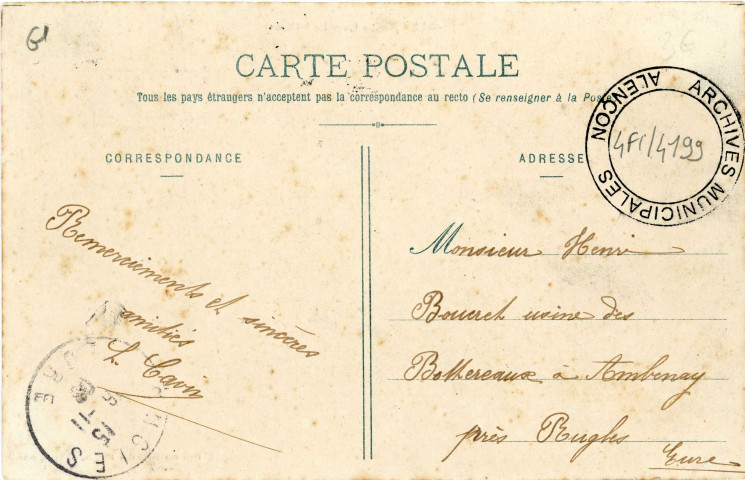 CARTE POSTALE
Tous les pays étrangers n'acceptent pas la correspondance au recto (Se renseigner à la Poste
CORRESPONDANCE
ADRESSE
ARCHIVES MUNICIPALES
ALENÇON
4FI/4199
Remerciements et sincères
amitiés
Monsieur Henri
Boucret usine des
Bottereaux à Ambenay
près Rugles
Eure
EURE